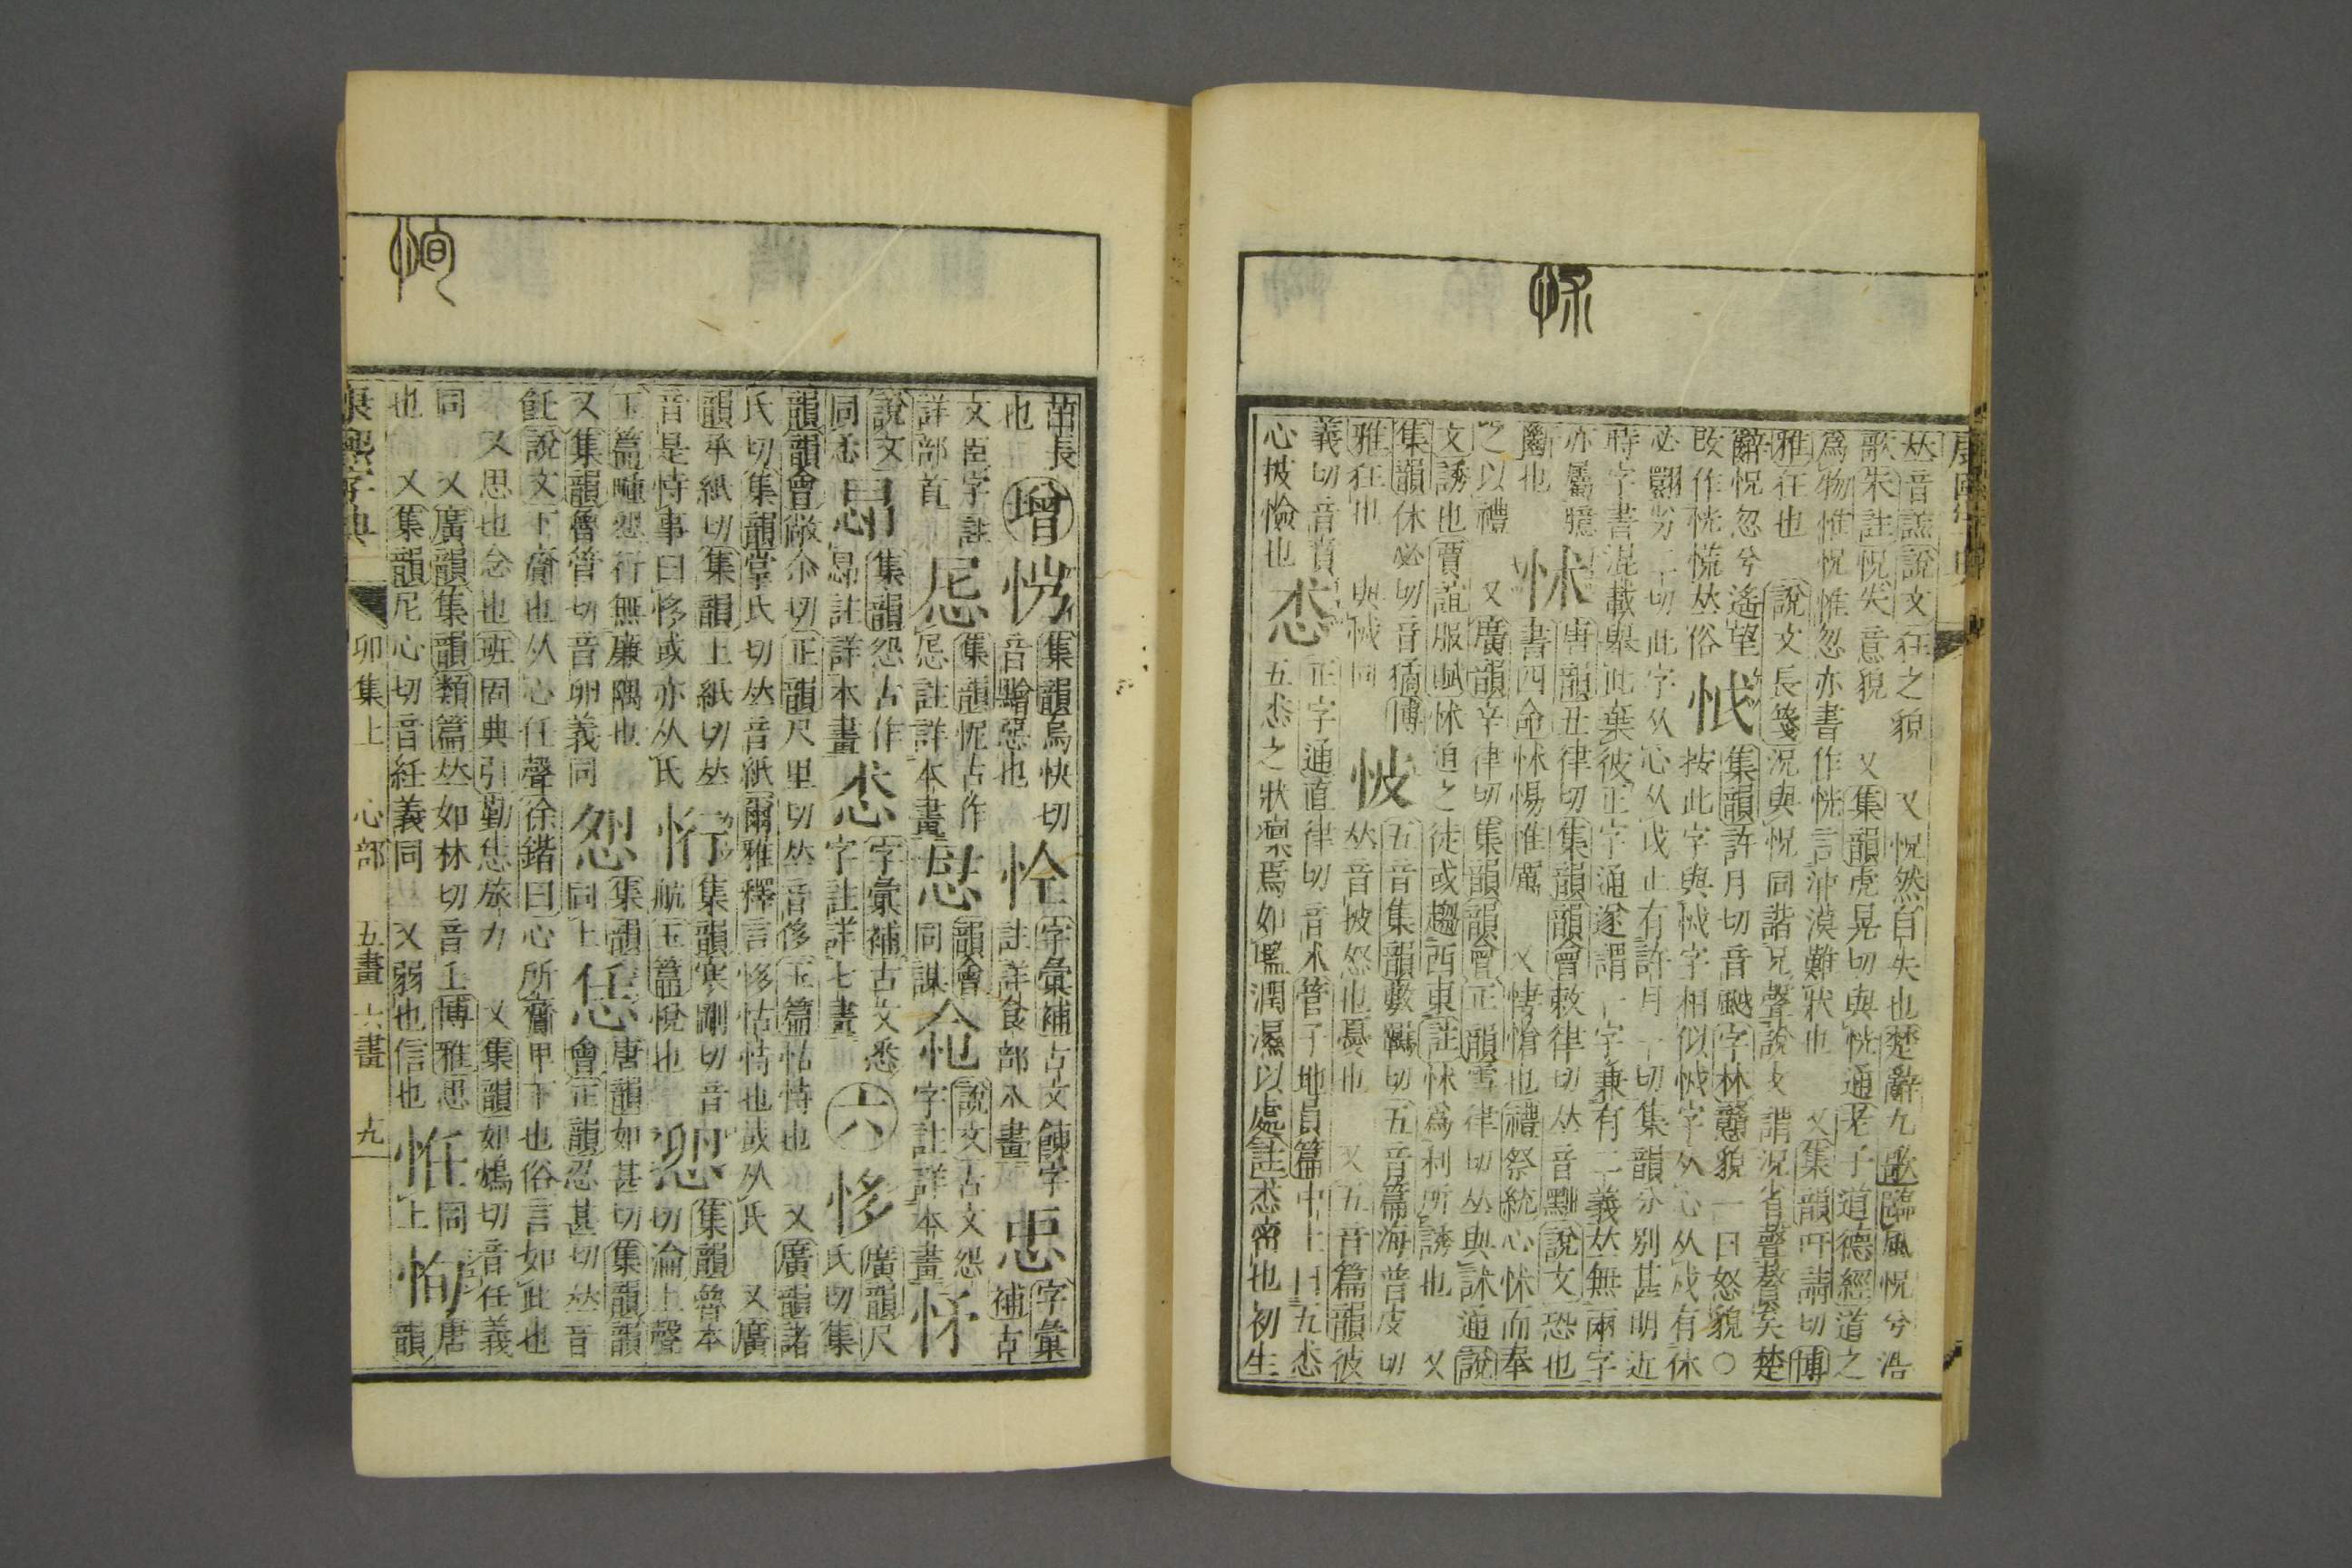 怵
𠀤音謊說文狂之貌 又怳然自失也楚辭九歌臨風怳兮浩
歌朱註怳失意貌 又集韻虎晃切與恍通老子道德經道之
爲物惟怳惟忽亦書作恍言沖漠難狀也 又集韻吁請切博
雅狂也 說文長箋況與怳同諧兄聲說文謂況省聲瞀矣楚
辭怳忽兮遙望
改作恍慌𠀤俗
怴
集韻許月切音颰字林戇貌一曰怒貌○
按此字與怴字相似怴字从心从戍有休
必翾劣二切此字从心从戉止有許月一切集韻分別甚明近
時字書混載與此葉彼正字通遂謂一字兼有二義𠀤無兩字
亦屬臆
斷也
怵
唐韻丑律切集韻韻會敕律切𠀤音黜說文恐也
書四命怵惕惟厲 又悽愴也禮祭統心怵而奉
之以禮 又廣韻辛律切集韻韻會正韻雪律切𠀤與訹通說
文誘也賈誼服賦怵迫之徒或趨西東註怵爲利所誘也 又
集韻休必切音獝博
雅狂也 與怴同
怶
五音集韻敷羈切五音篇海普皮切
𠀤音披怒也憂也 又五音篇韻彼
義切音賁
心披憸也
怷
正字通直律切音朮管子地員篇中土曰五怷
五怷之狀凛焉如𪉹潤濕以處註怷密也初生
恂
苗長
也
增
㤑
集韻烏快切
音黵惡也
㤇
字彙補古文餗字
註詳食部八畫
㤙
字彙
補古
文臣字註
詳部首
𢗘
集韻怩古作
𢗘註詳本畫
惎
韻會
同謀
㤅
說文古文怨
字註詳本畫
怀
說文
同恭
𢘇
集韻怨古作
𢘇註詳本畫
怷
字彙補古文悉
字註詳七畫
六
恀
廣韻尺
氏切集
韻韻會敞尒切正韻尺里切𠀤音侈玉篇怙恃也 又廣韻諸
氏切集韻掌氏切𠀤音紙爾雅釋言恀怙恃也或从氏 又廣
韻承紙切集韻上紙切𠀤
音是恃事曰恀或亦从氏
𢙡
集韻寒剛切音
航玉篇悅也
恖
集韻魯本
切淪上聲
玉篇㥄怨行無廉隅也
又集韻魯管切音卵義同
㤪
集韻
同上
恁
唐韻如甚切集韻韻
會正韻忍甚切𠀤音
飪說文下齎也从心任聲徐鍇曰心所齎卑下也俗言如此也
又思也念也班固典引勤恁旅力 又集韻如鴆切音任義
同 又廣韻集韻類篇𠀤如林切音壬博雅思
也 又集韻尼心切音紝義同 又弱也信也
恮
同
上
恂
唐
韻
康熙字典
卯集上 心部 五畫 六畫 九